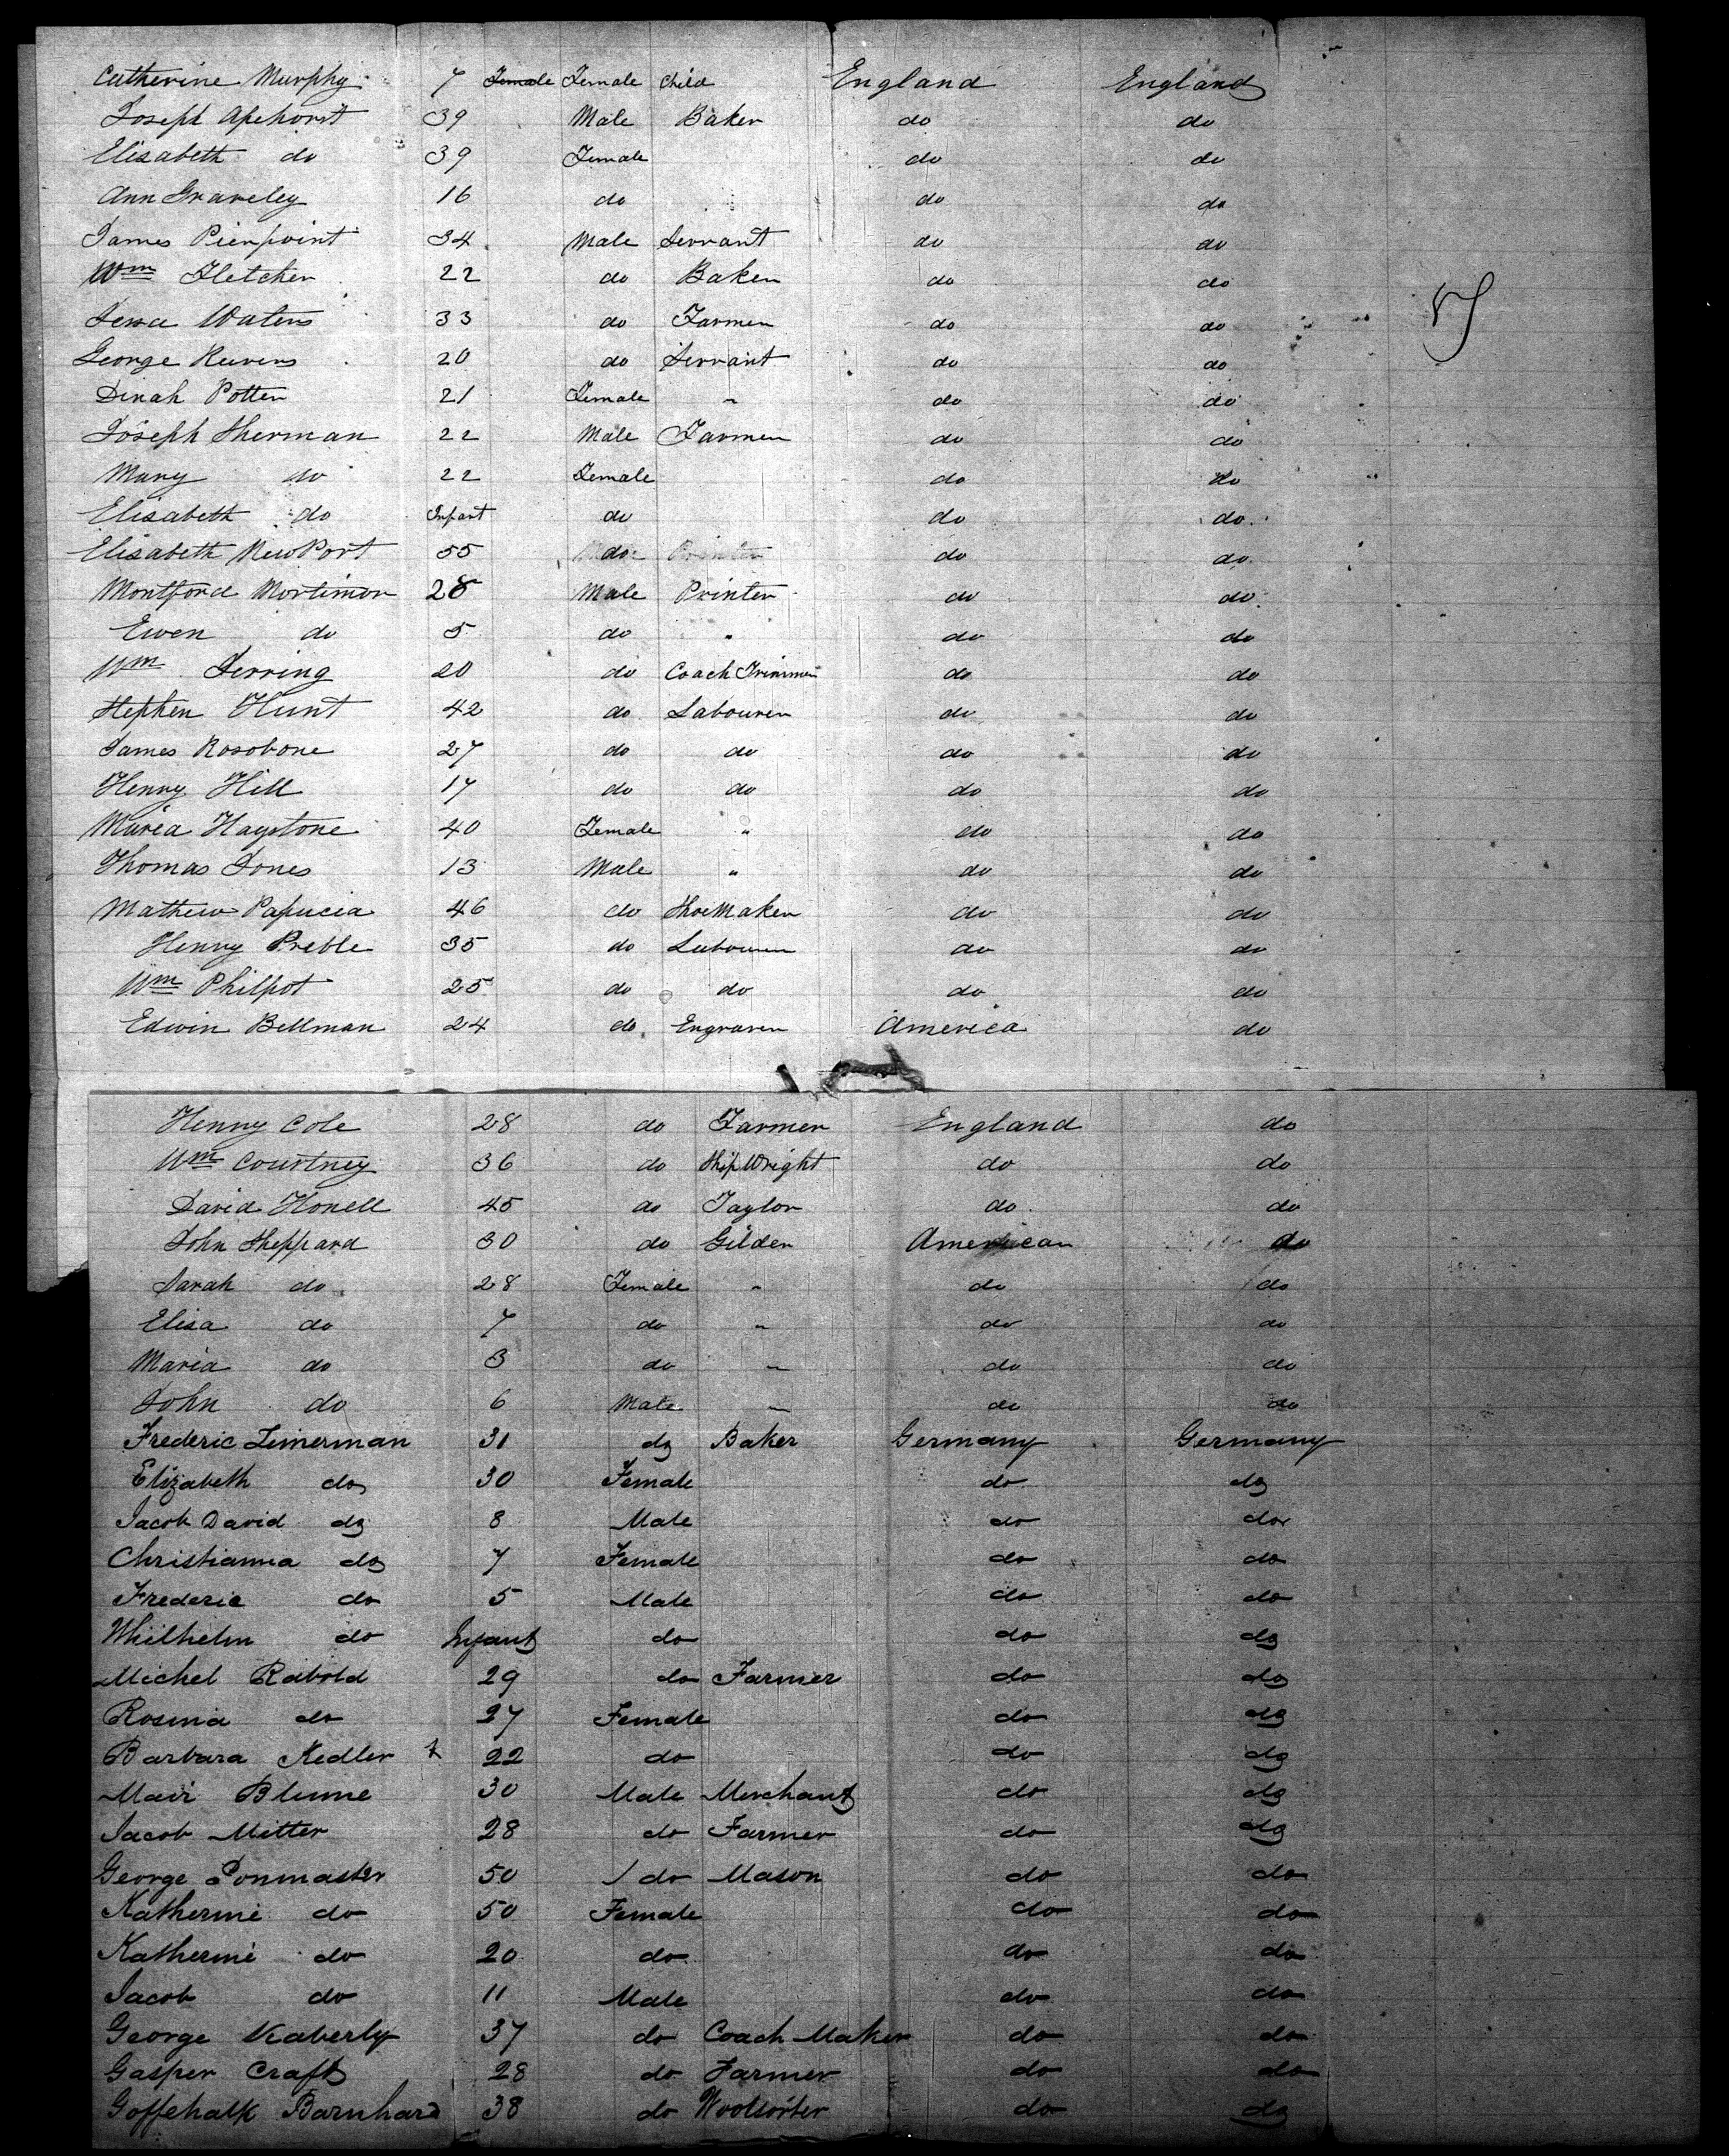 Catherine Murphy 7 Female Female Child England England
Joseph Apehorst 39 Male Baker do do
Elisabeth do 39 Female do do
Ann Graveley 16 do do do
James Pierpoint 34 Male Servant do do
Wm Fletcher 22 do Baker do do
Waters 33 do Farmer do do
George Reevers 20 do Servant do do
Dinah Potter 21 Female " do do
Joseph Sherman 22 Male Farmer do do
Mary do 22 Female do do
Elisabeth do Infant do do do
Elisabeth NewPort 55 do Printer do do
Montford Mortimor 28 Male Printer do do
Ewen do 5 do " do do
Wm Jerring 20 do Coach Trimmer do do
Stephen Hunt 42 do Labourer do do
James Rosobone 27 do do do do
Henry Hill 17 do do do do
Maria Haystone 40 Female " do do
Thomas Jones 13 Male " do do
Mathew Papucia 46 do ShoeMaker do do
Henry Preble 35 do Labourer do do
Wm Philpot 25 do do do do
Edwin Bellman 24 do Engraver America do
Henny Cole 28 do Farmer England do
Wm Courtney 36 do ShipWright do do
David Honell 45 do Taylor do do
John Sheppard 30 do Gilder American do
Sarah do 28 Female " do do
Elisa do 7 do " do do
Maria do 3 do " do do
John do 6 Male " do do
Frederic Zimerman 31 do Baker Germany Germany
Elizabeth do 30 Female do do
Jacob David do 8 Male do do
Christianna do 7 Female do do
Frederic do 5 Male do do
Whilhelm do Infant do do do
Michel Rabold 29 do Farmer do do
Rosina do 27 Female do do
Barbara Kedler 22 do do do
Mair Blume 30 Male Merchant do do
Jacob Mitter 28 do Farmer do do
George Ponmaster 50 do Mason do do
Katherine do 50 Female do do
Katherine do 20 do do do
Jacob do 11 Male do do
George Kaberly 37 do Coach Maker do do
Gasper Craft 28 do Farmer do do
Goffehalk Barnhard 38 do Woolsorter do do